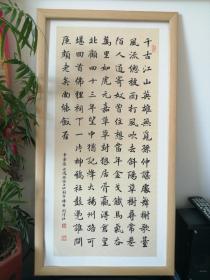 千古江山英雄無覓孫仲謀處舞榭歌臺
風流總被雨打風吹去斜陽草樹尋常巷
陌人道寄奴曾住想當年金戈鐵馬氣吞
萬里如虎元嘉草草封狼居胥贏得倉皇
北顧四十三年望中猶記烽火揚州路可
堪回首佛狸祠下一片神鴉社鼓憑誰問
廉頗老矣尚能飯否